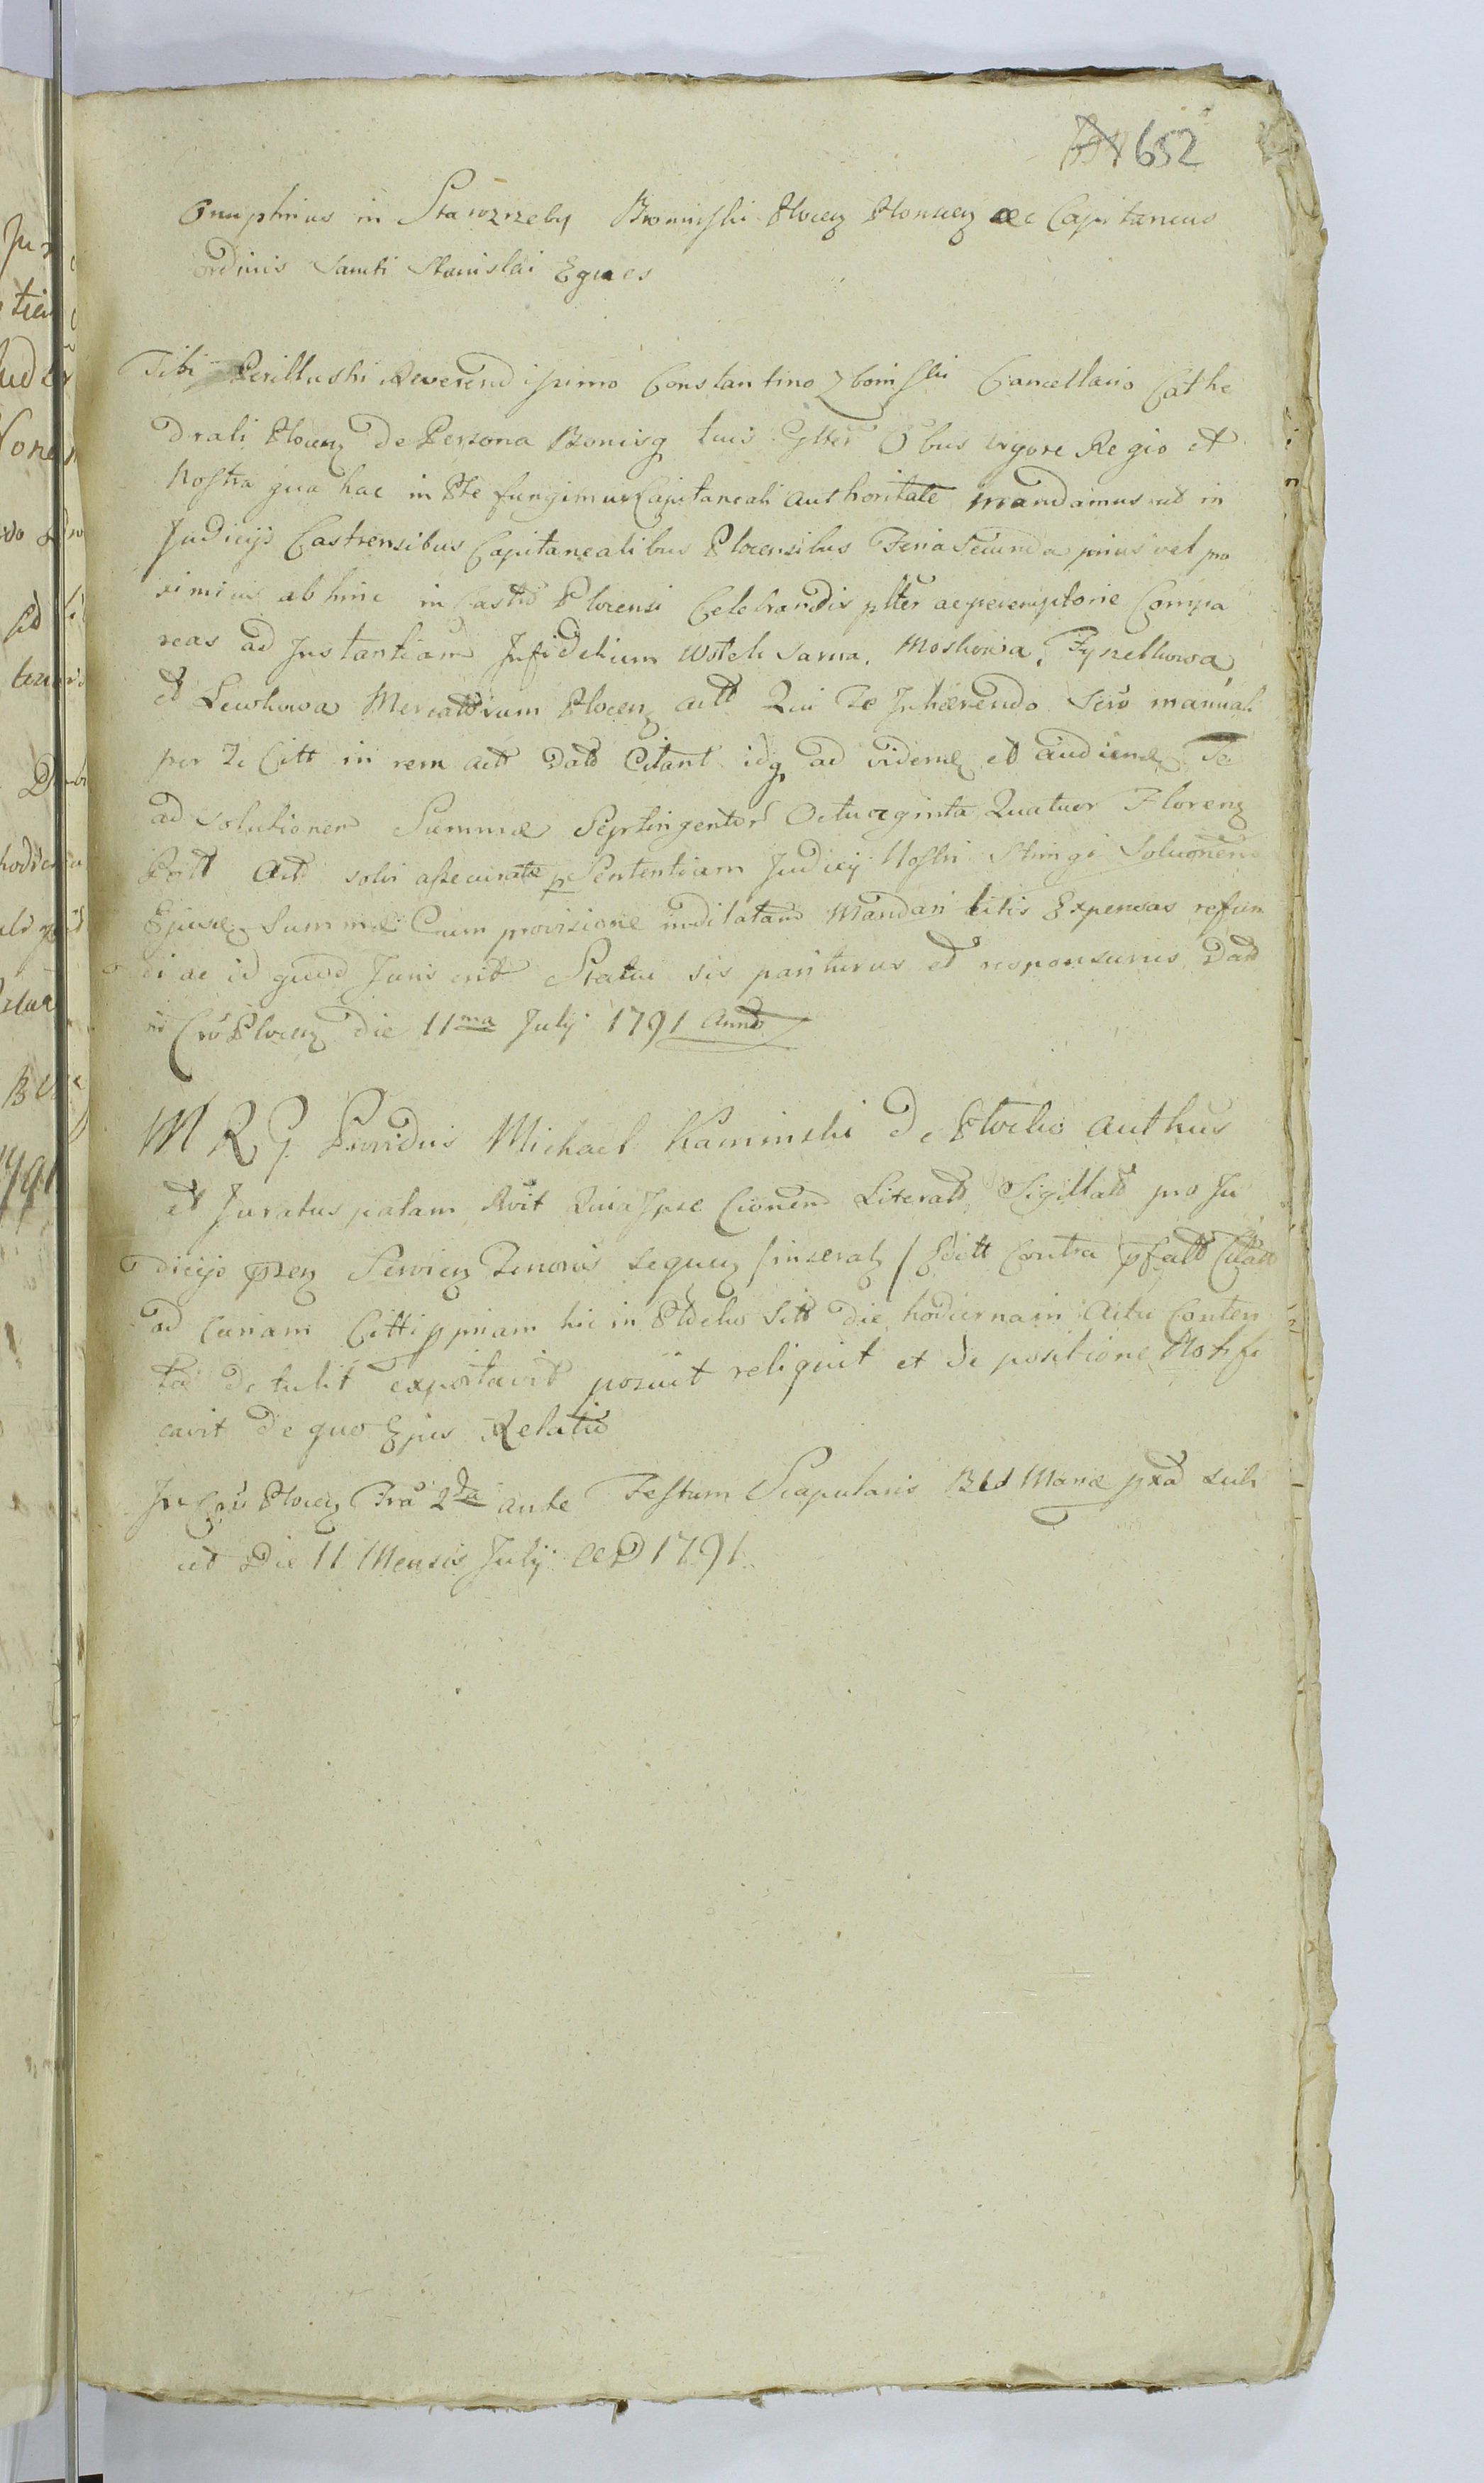 652
Onuphrius in Stawrzeby Brominski Plocen Plonscen &c Capitaneus
ordinis Sancti Stanislai Eques
Tibi Perillustri Reverendissimo Constantino Zboinski Cancellario Cathe
drali Plocen de Persona Bonisq tuis Gltter Obus vigore Regio et
Nostra qua hac in Pte fungimur Capitaneali Authoritate mandamus ut in
Judicijs Castrensibus Capitanealibus Plocensibus Feria Secunda prius vel pro
ximius abhinc in Castro Plocensi Celebrandis pltter ac peremptorie Compa
reas ad Instantiam Infidelium Wolek Sarna, Moskowa, Fyszelkowa,
et Lewkowa Mercatorum Plocen actt Qui Te Inhaerendo Scro manuali
per Te Citt in rem actt Dato Citant idq ad vidend et audiend Te
ad solutionem Summae Septingentor Octuaginta Quatuor Floren
Pctt Actt solvi assecuratae p Sententiam Judicij Nostri Stringi Solucionem
Ejusd Summae Cum provisione inditatam Mandari litis Expensas refun
di ac id quod Juris erit Statui sis pariturus et responsurus Datt
in Cro Plocen Die 11ma Julij 1791 Anno
M R G Providus Michael Kaminski de Plocko Authus
et Juratus palam Rvit Quia Ipse Cionem Literato Sigillato pro Ju
dicijs pzen Servien Tenoris sequen /inserat/ Editt Contra pfatt Citatt
ad Curiam Citti ppriam hic in Plocko Sitt die hodierna in Actu Conten
ta detulit exportavit posuit reliquit et de positione Notifi
cavit de quo Ejus Relatio
In Cro Plocen Fra 2da ante Festum Scapularis B V Mariae pxa sub
ut Die 11 Mensis Julij A D 1791